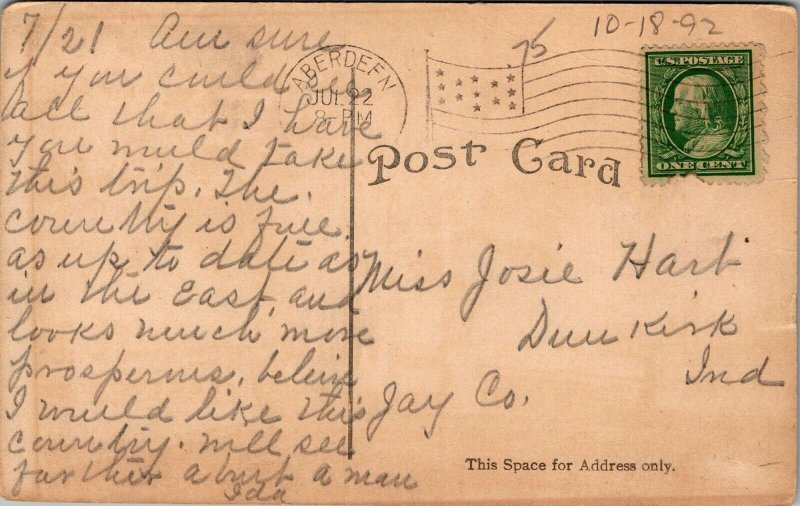 7/21 Am sure
if you could see
all that I have
you would take
this trip. The
country is fine
as up to date as
in the East, and
looks much more
prosperous, believe
I would like this
country. will see
farther about a man
Ida
ABERDEEN
JUL 22
8-PM
10-18-92
U.S. POSTAGE
ONE CENT
Post Card
Miss Josie Hart
Dunkirk
Ind
Jay Co.
This Space for Address only.